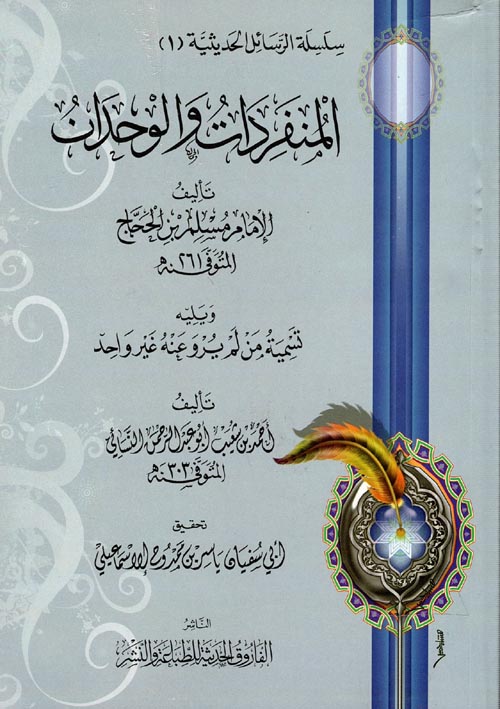 سِلسِلَة الرَّسَائِل الحَديثيَّة (١)
المُنفَرِدَاتُ وَالوُحْدَانُ
تَأليفُ
الإمَام مُسْلِم بْن الحَجَّاج
المُتَوفَّى سَنة ٢٦١ هـ
وَيَليه
تَسْمِيَةُ مَن لَم يَروِ عَنْهُ غَيْر وَاحِد
تَأليفُ
أحْمَد بْن شُعَيْب أبُو عَبْد الرَّحْمَن النَّسَائي
المُتَوفَّى سَنة ٣٠٣ هـ
تحقيق
أَبي سُفيَان يَاسِر بْن مُحَمَّد فتُوح الإسمَاعيلي
النَّاشِرُ
الفَارُوق الحَديثَة لِلطِّبَاعَة وَالنَّشر